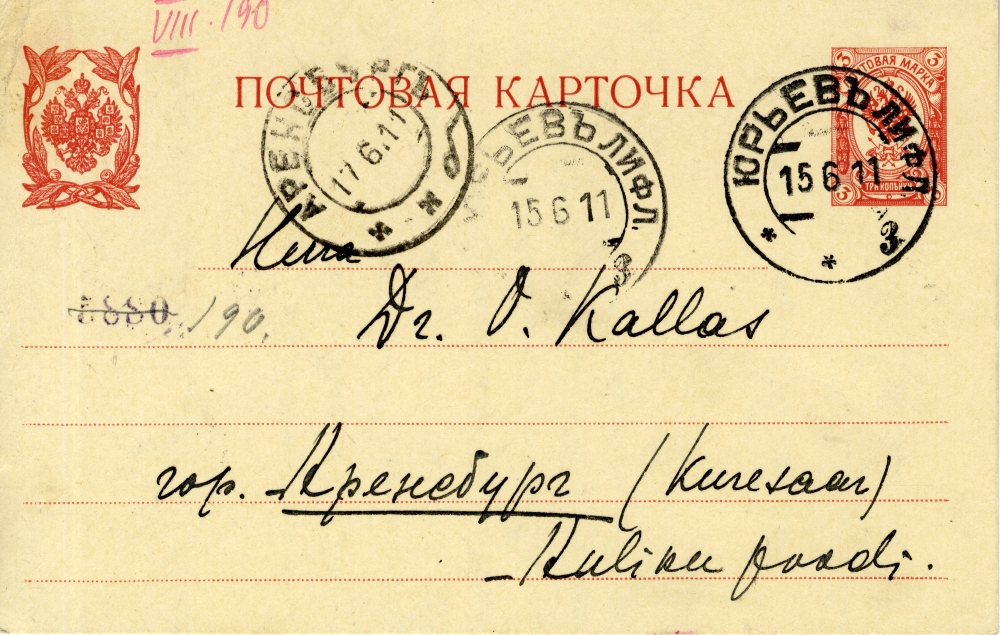 VIII. 190
ПОЧТОВАЯ КАРТОЧКА
МАРКА
ТРИ КОПѢЙКИ
3 3
АРЕНСБУРГЪ
17.6.11
ЮРЬЕВЪ ЛИФЛ.
15 6 11
3
ЮРЬЕВЪ ЛИФЛ.
15 6 11
3
Herra
Dr. O. Kallas
5880 190.
гор. Аренсбург (Kuresaar)
poodi.